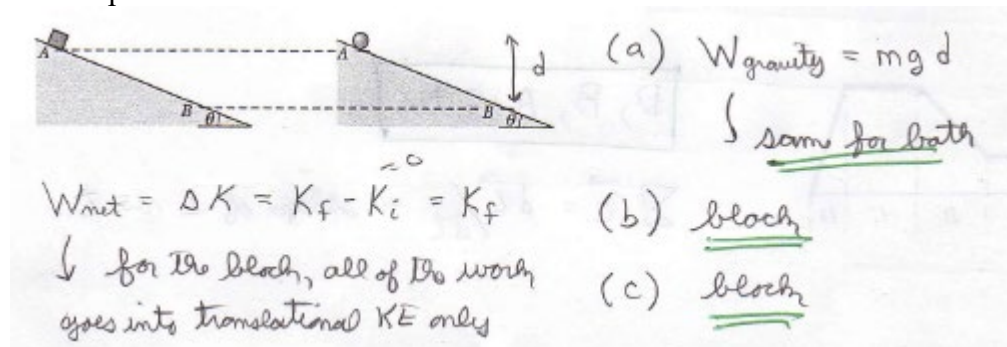 A
B
θ
A
B
θ
d
(a) W gravity = mg d
same for both
Wnet = ΔK = Kf - Ki = Kf
= 0
(b) block
↓ for the block, all of the work
goes into translational KE only
(c) block